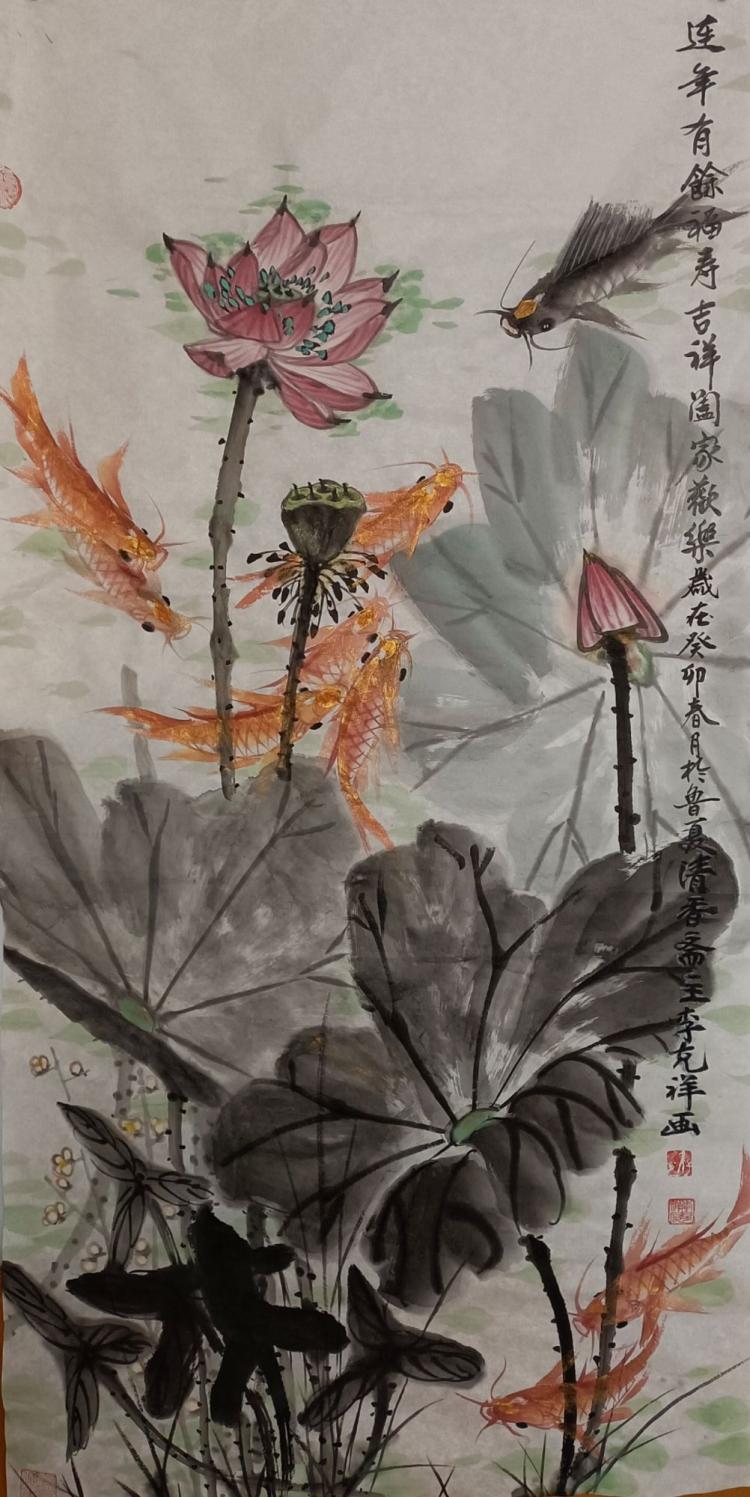 连年有餘福寿吉祥阖家歡樂歲在癸卯春月於鲁夏清香斋主李克祥画